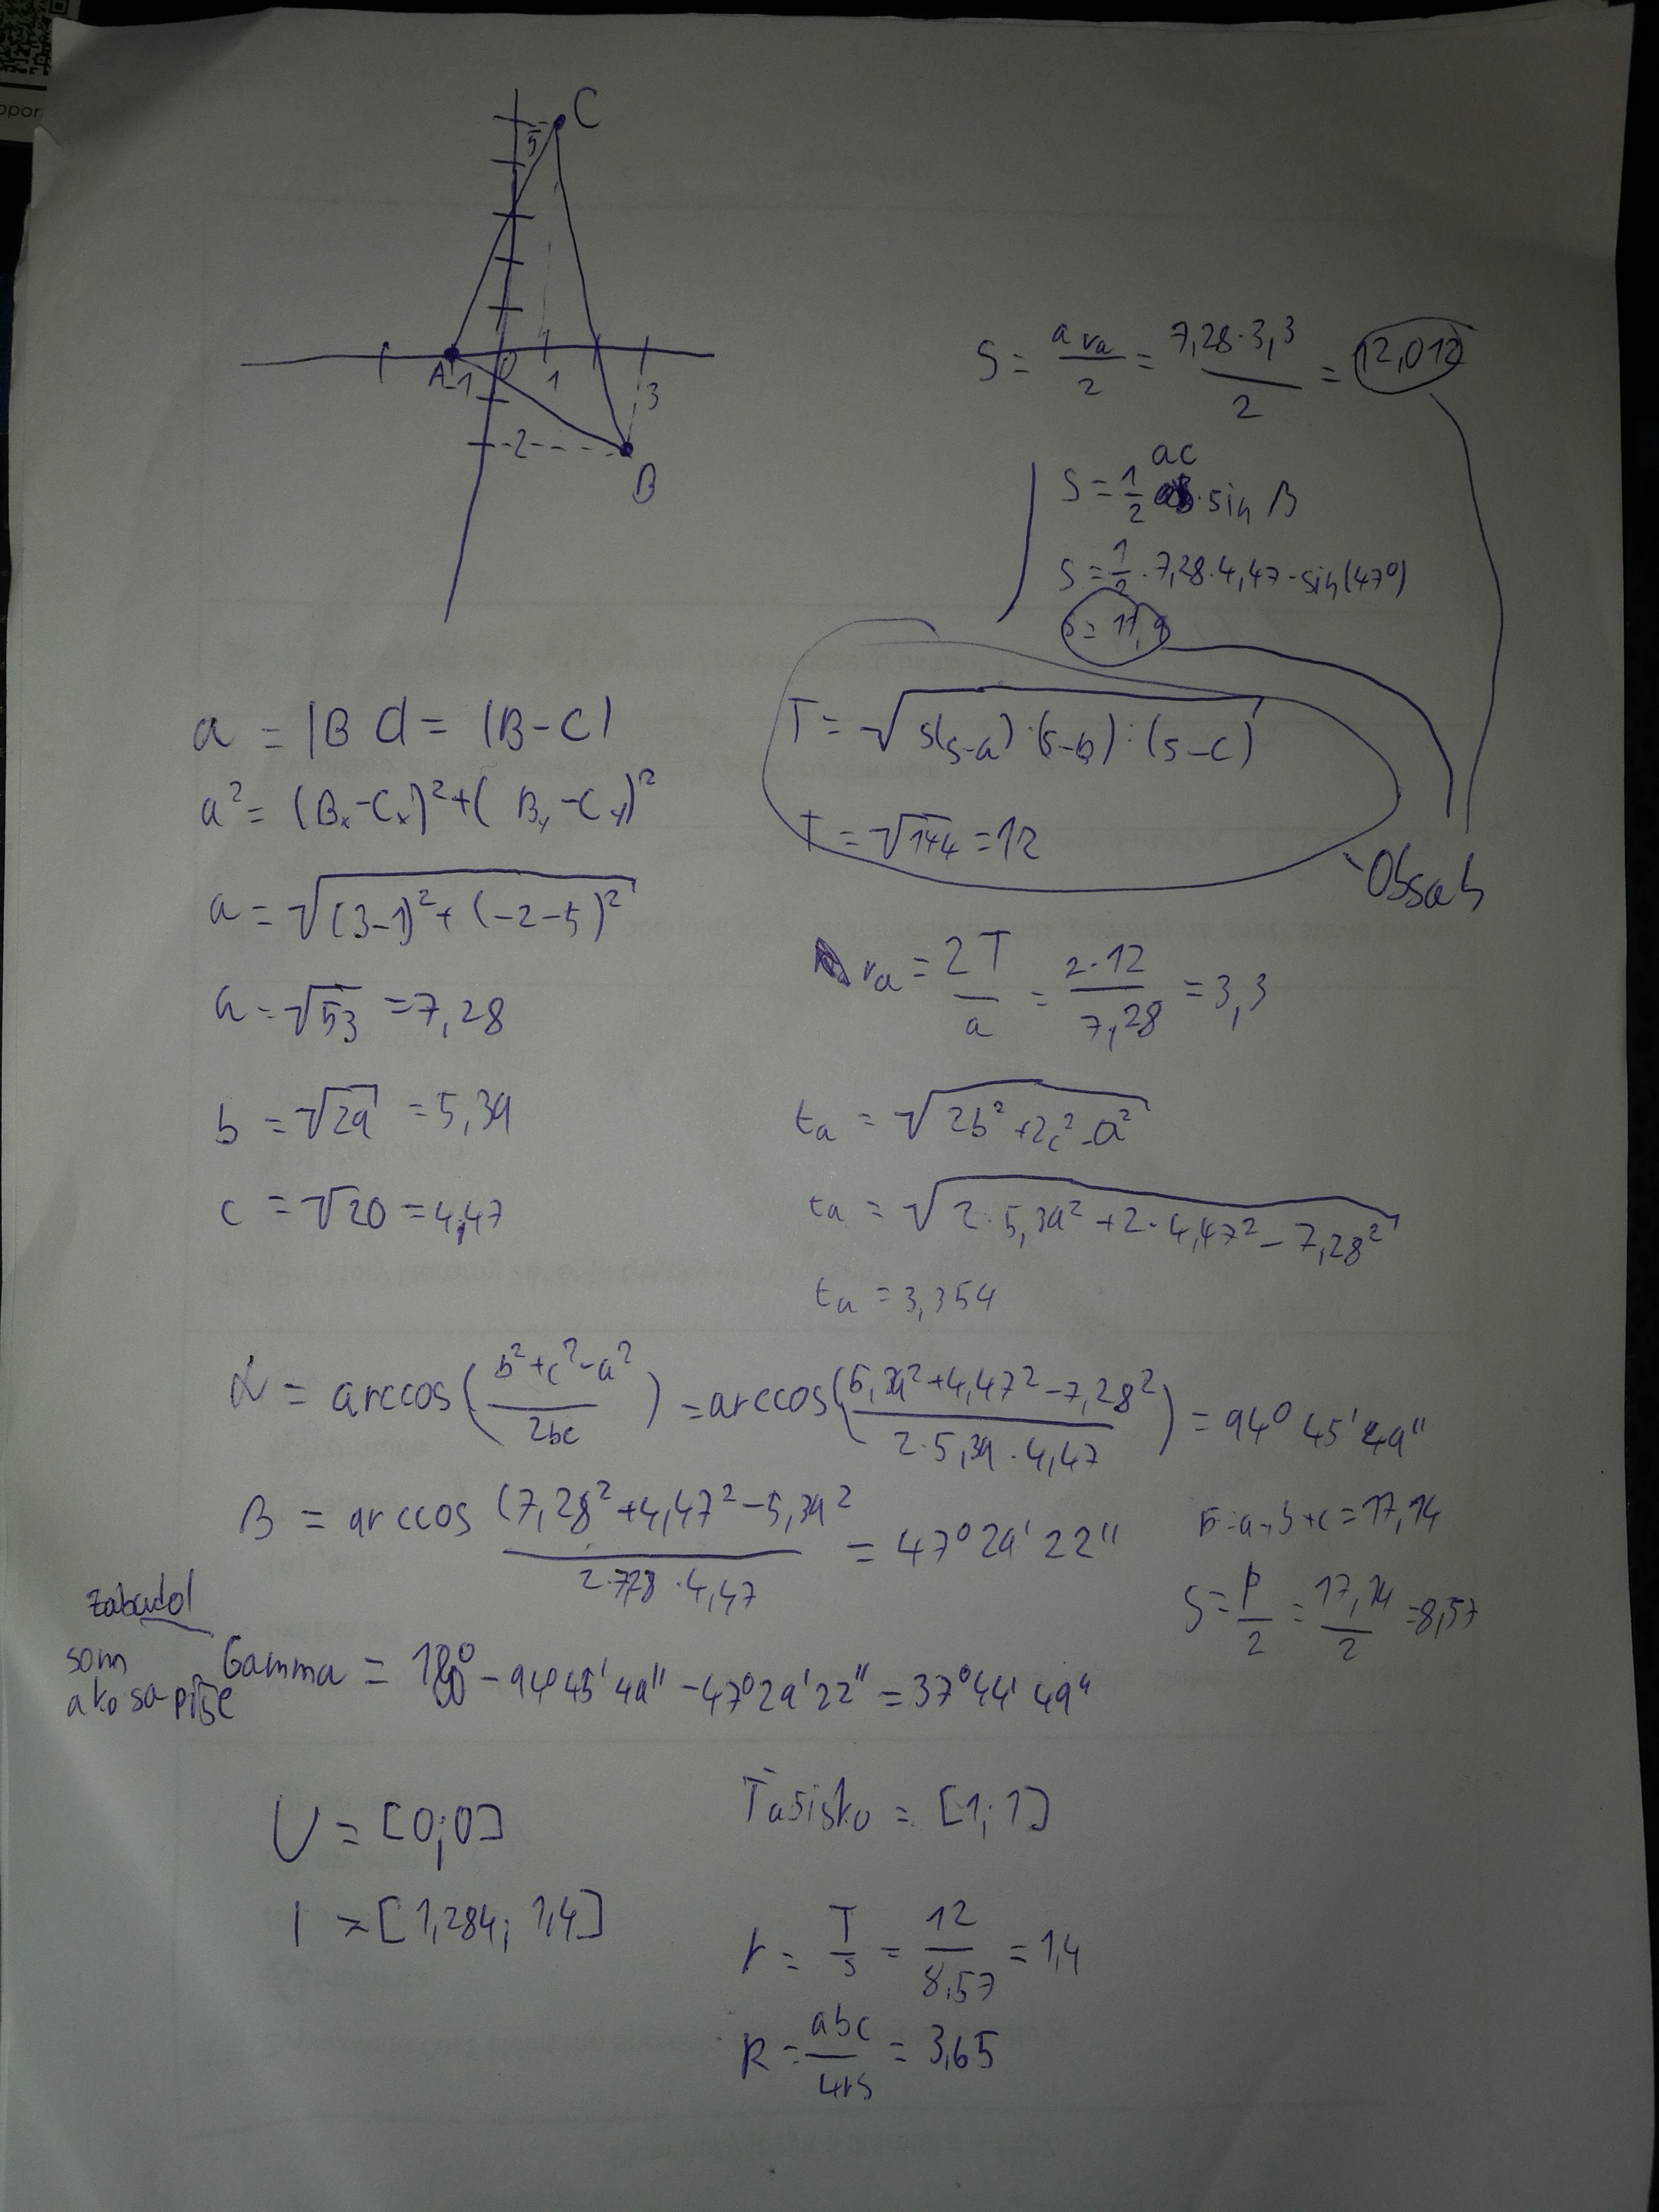 opor
C
5
A -1 0 1 3
-2
B
S = a va / 2 = 7,28·3,3 / 2 = 12,012
ac
S = 1/2 · sin B
S = 1/2 · 7,28·4,47 · sin(47°)
S = 11,9
a = |BC| = (B-C)
a² = (Bx-Cx)² + (By-Cy)²
a = √((3-1)² + (-2-5)²)
a = √53 = 7,28
b = √29 = 5,39
c = √20 = 4,47
T = √(s(s-a)·(s-b)·(s-c))
T = √144 = 12
Obsah
va = 2T / a = 2·12 / 7,28 = 3,3
ta = √(2b² + 2c² - a²)
ta = √(2·5,39² + 2·4,47² - 7,28²)
ta = 3,354
α = arccos((b²+c²-a²) / 2bc) = arccos((5,39²+4,47²-7,28²) / (2·5,39·4,47)) = 94° 45' 49"
β = arccos (7,28²+4,47²-5,39² / 2·7,28·4,47 = 47° 29' 22"
=a+b+c = 17,14
S = P / 2 = 17,14 / 2 = 8,57
zabudol
som
ako sa píše
Gamma = 180° - 94° 45' 49" - 47° 29' 22" = 37° 44' 49"
U = [0;0]
Ťašisko = [1;1]
I = [1,284; 1,4]
r = T / s = 12 / 8,57 = 1,4
R = abc / 4rs = 3,65